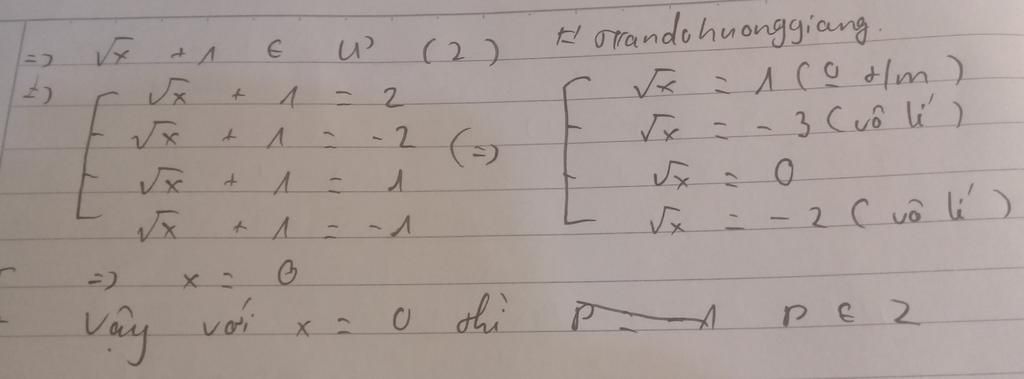 => √x + 1 ∈ Ư (2) # trandohuonggiang.
=> [ √x + 1 = 2
√x + 1 = -2
√x + 1 = 1
√x + 1 = -1
(=) [ √x = 1 (o t/m)
√x = -3 (vô lí)
√x = 0
√x = -2 (vô lí)
=> x = 0
Vậy với x = 0 thì P ∈ Z